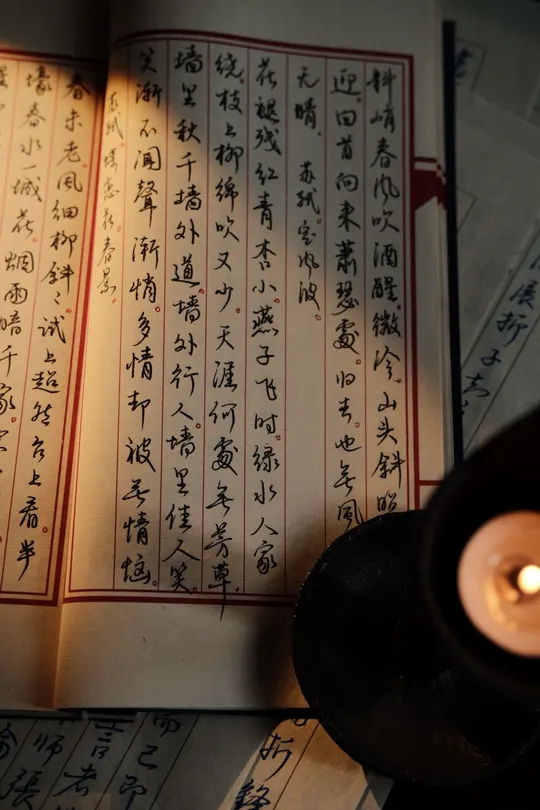 料峭春风吹酒醒。微冷。山头斜照
迎。回首向来蕭瑟處。归去。也无风
无晴。 苏轼 定风波。
花褪残红青杏小。燕子飞时。绿水人家
绕。枝上柳绵吹又少。天涯何處无芳草。
墙里秋千墙外道。墙外行人。墙里佳人笑。
笑渐不闻聲渐悄。多情却被无情恼。
苏轼 蝶恋花春景。
春未老。风细柳斜〻。试上超然台上看。半
壕春水一城花。烟雨暗千家。
展折子
而已即
言者
师張
折